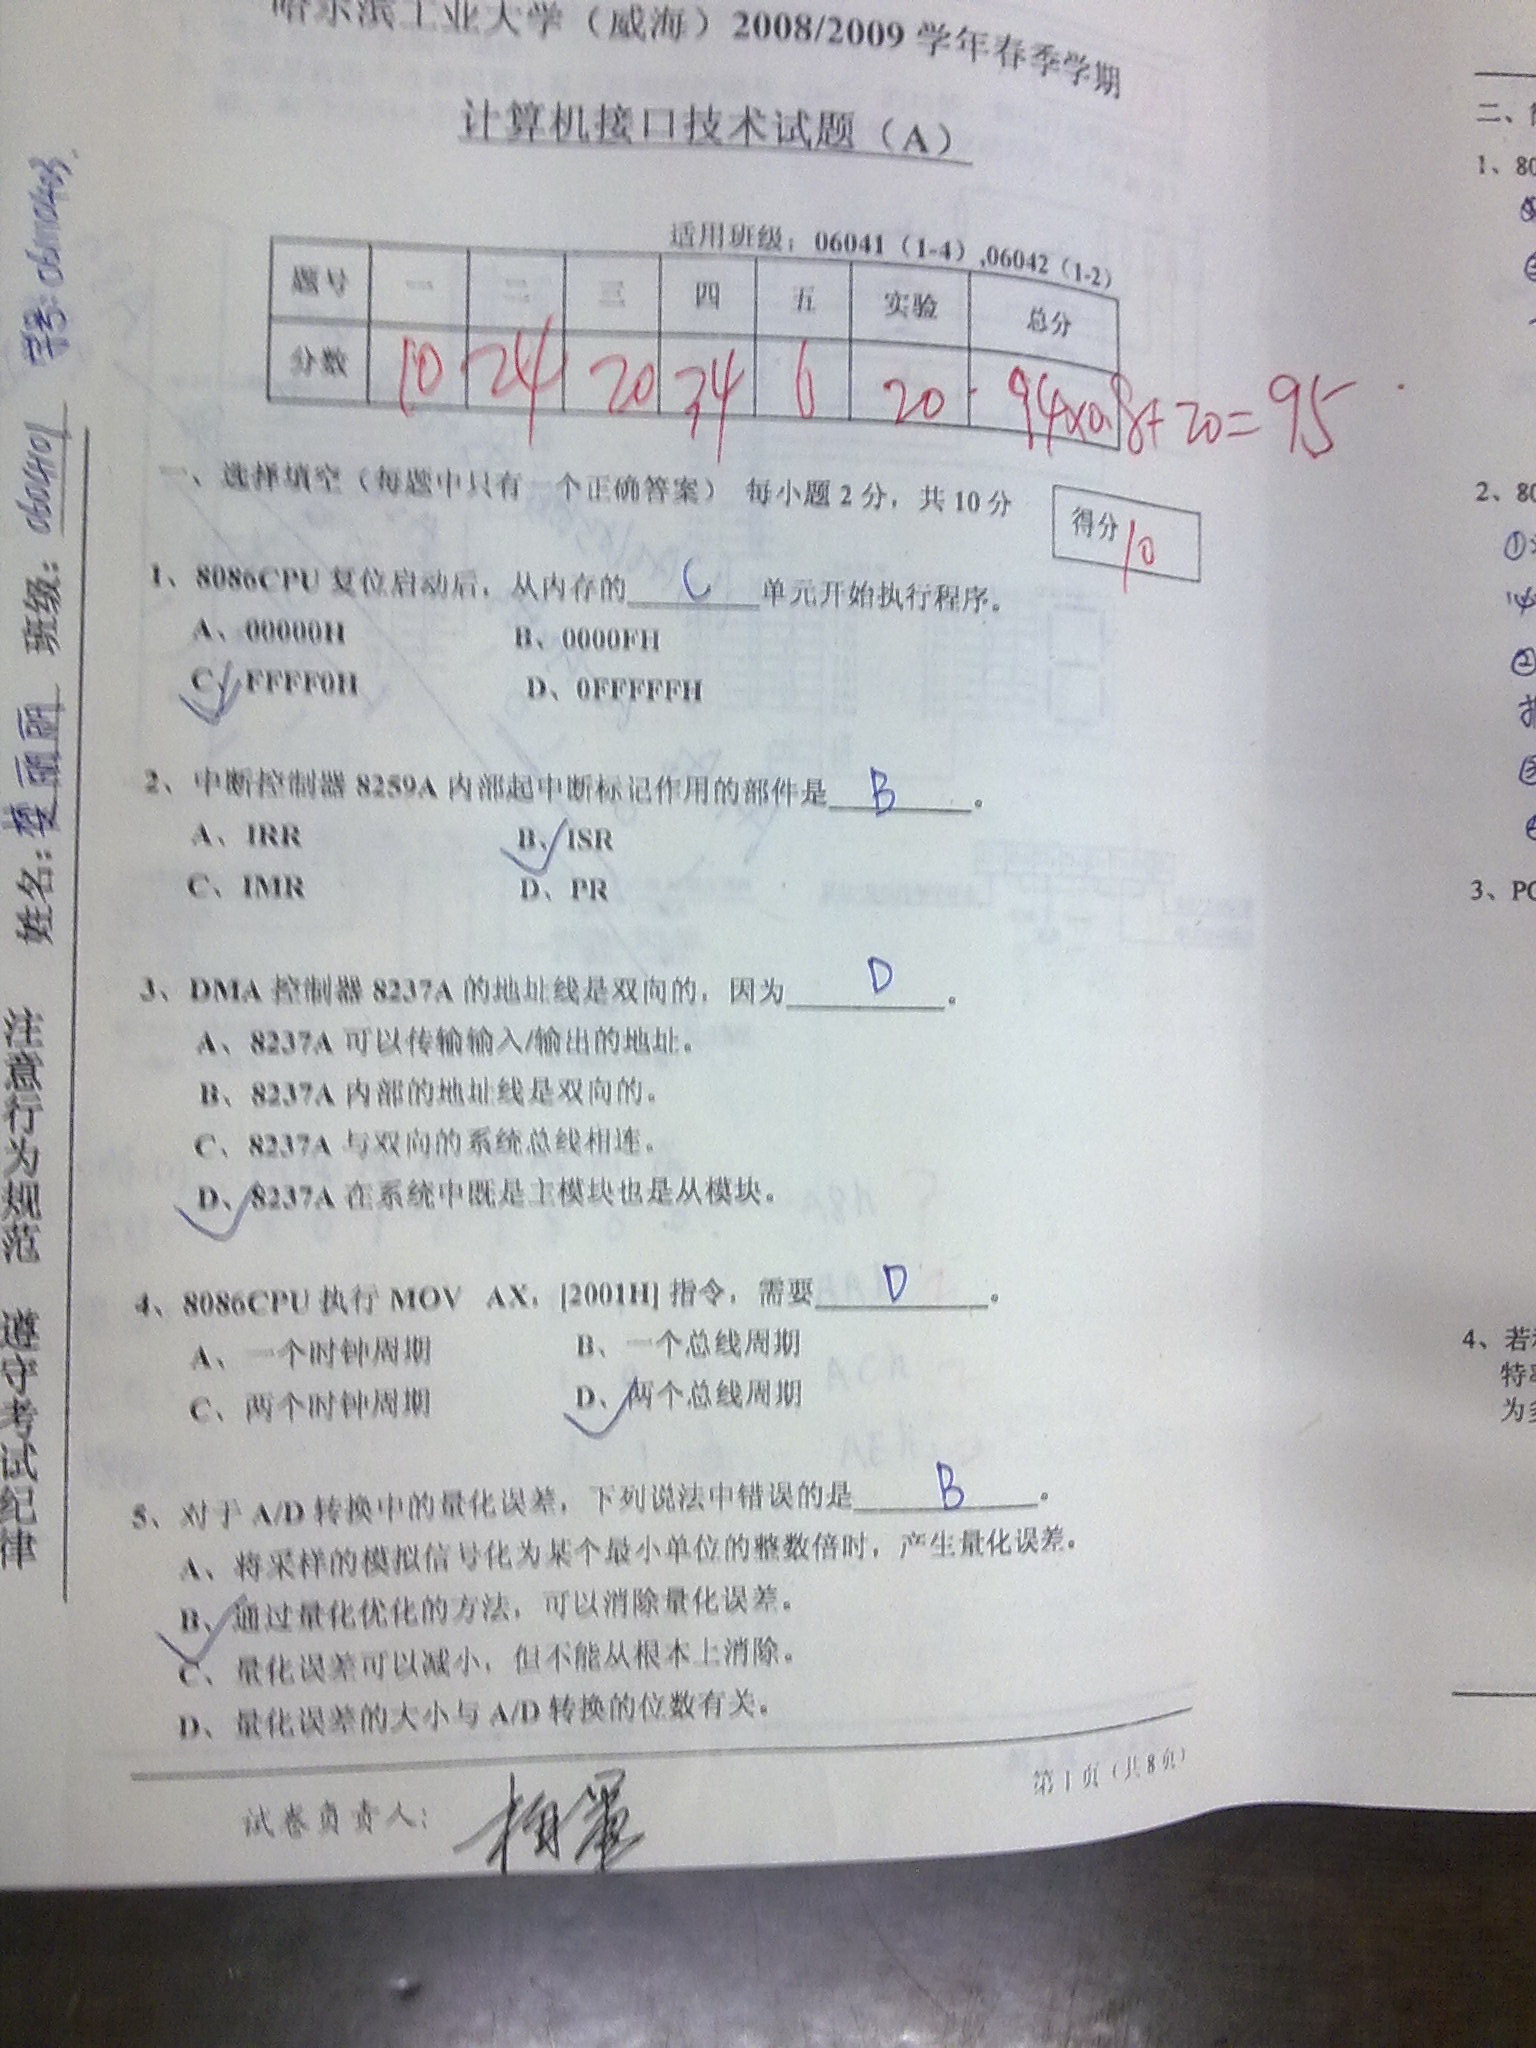 哈尔滨工业大学（威海）2008/2009 学年春季学期
计算机接口技术试题（A）
适用班级：06041（1-4）,06042（1-2）
题号 一 二 三 四 五 实验 总分
分数 10 24 20 34 6 20 94×0.8+20=95
一、选择填空（每题中只有一个正确答案） 每小题 2 分，共 10 分
得分 10
1、8086CPU 复位启动后，从内存的 C 单元开始执行程序。
A、00000H B、0000FH
C、FFFF0H D、0FFFFFH
2、中断控制器 8259A 内部起中断标记作用的部件是 B 。
A、IRR B、ISR
C、IMR D、PR
3、DMA 控制器 8237A 的地址线是双向的，因为 D 。
A、8237A 可以传输输入/输出的地址。
B、8237A 内部的地址线是双向的。
C、8237A 与双向的系统总线相连。
D、8237A 在系统中既是主模块也是从模块。
4、8086CPU 执行 MOV AX，[2001H] 指令，需要 D 。
A、一个时钟周期 B、一个总线周期
C、两个时钟周期 D、两个总线周期
5、对于 A/D 转换中的量化误差，下列说法中错误的是 B 。
A、将采样的模拟信号化为某个最小单位的整数倍时，产生量化误差。
B、通过量化优化的方法，可以消除量化误差。
C、量化误差可以减小，但不能从根本上消除。
D、量化误差的大小与 A/D 转换的位数有关。
第 1 页（共 8 页）
试卷负责人：
注意行为规范 遵守考试纪律
姓名： 班级：0604101 学号：
二、
1、80
2、80
①
②
3、PC
4、若
为